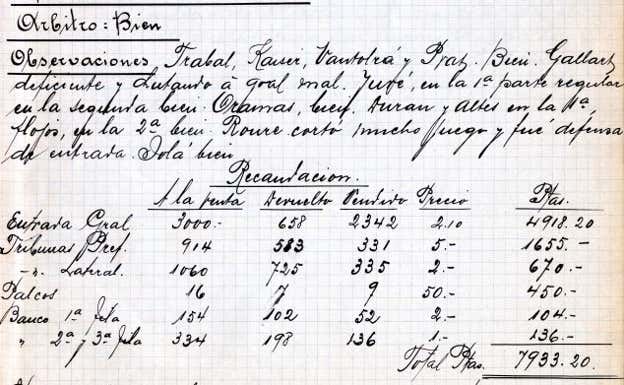 Arbitro: Bien
Observaciones Trabal, Kaiser, Vantolrá y Prat. Bien. Gallart
deficiente y chutando á goal mal. Juvé, en la 1ª parte regular
en la segunda bien. Oramas, bien. Duran y Altés en la 1ª,
flojos, en la 2ª bien. Roure cortó mucho juego y fué defensa
de entrada. Solá bien
Recaudacion.
A la venta Devuelto Vendido Precio Ptas.
Entrada Gral 3000.- 658 2342 2.10 4918.20
Tribunas Pref. 914 583 331 5.- 1655.-
" Lateral. 1060 725 335 2.- 670.-
Palcos 16 7 9 50.- 450.-
Banco 1ª fila 154 102 52 2.- 104.-
" 2ª y 3ª fila 334 198 136 1.- 136.-
Total Ptas. 7933.20.